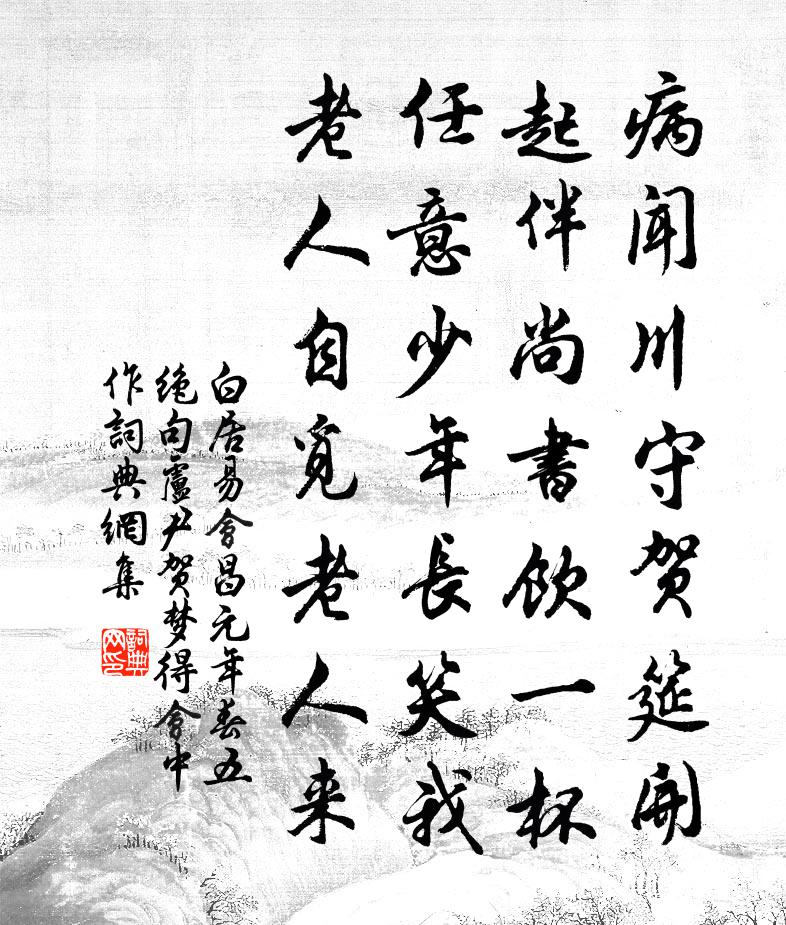 病闻川守贺筵開
起伴尚書飲一杯
任意少年長笑我
老人自觅老人来
白居易會昌元年春五
绝句盧尹贺梦得會中
作詞典網集
詞典网印